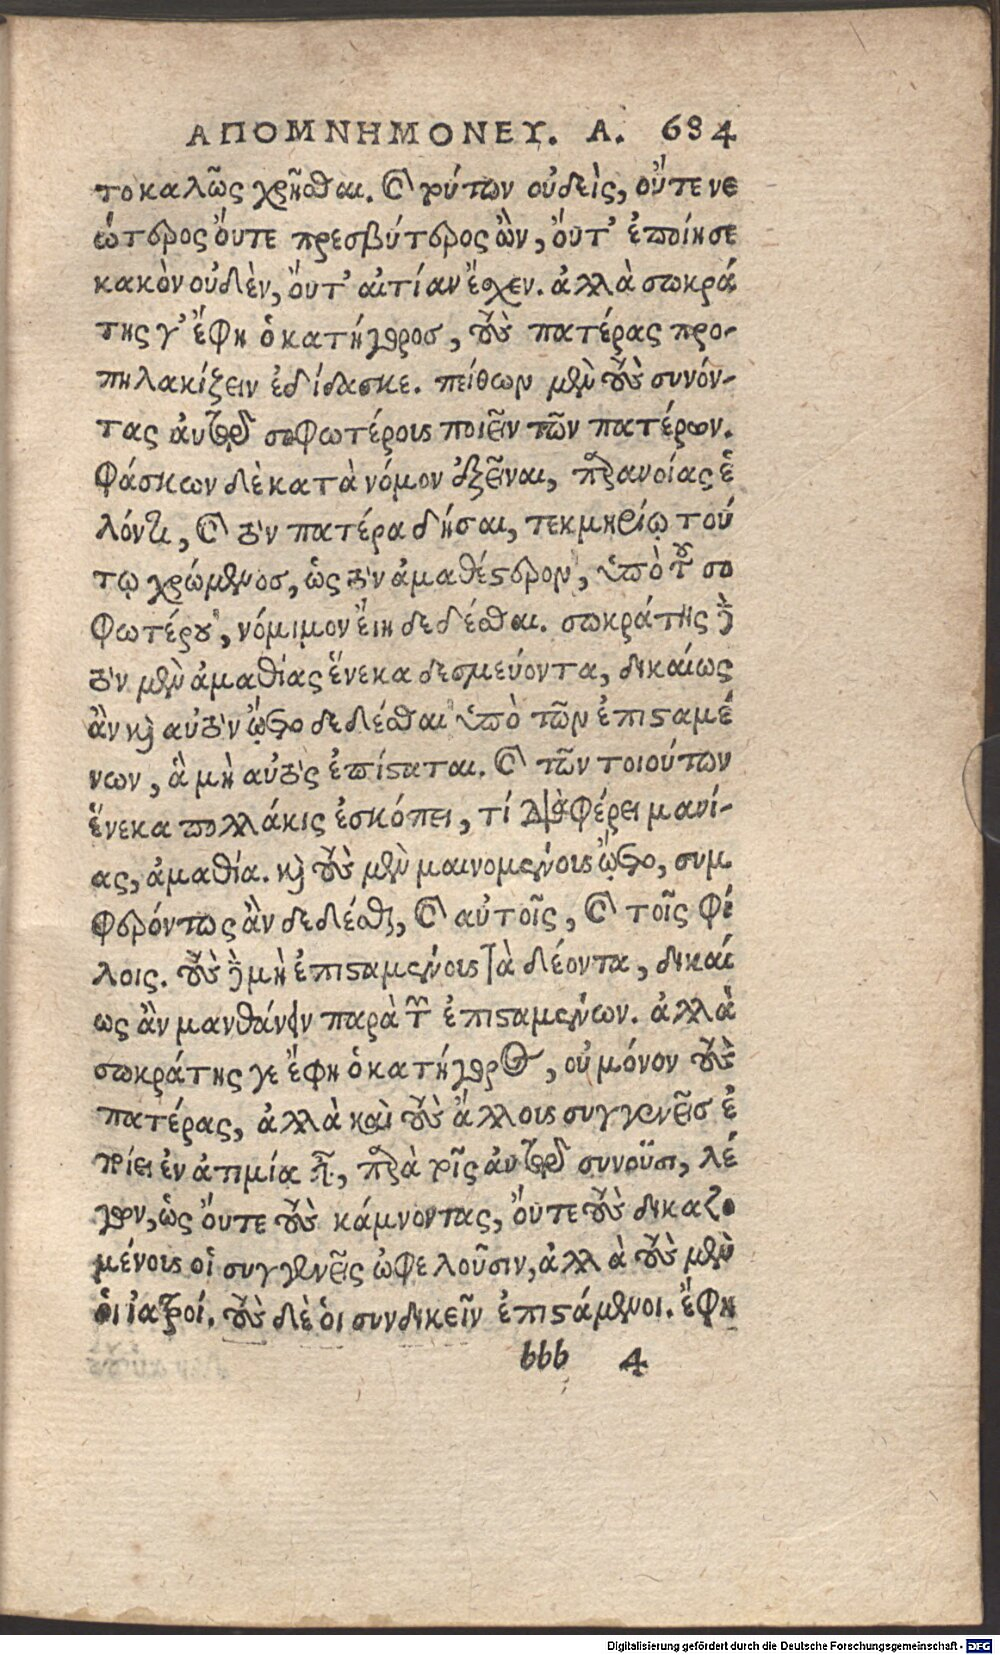 ΑΠΟΜΝΗΜΟΝΕΥ. Α. 684
το καλῶς χρῆσθαι. καὶ τούτων οὐδεὶς, οὔτε νε
ώτερος οὔτε πρεσβύτερος ὢν, οὔτ' ἐποίησε
κακὸν οὐδὲν, οὔτ' αἰτίαν ἔσχεν. ἀλλὰ σωκρά
της γ' ἔφη ὁ κατήγορος, τοὺς πατέρας προ-
πηλακίζειν ἐδίδασκε. πείθων μὲν τοὺς συνόν-
τας αὐτῷ σοφωτέρους ποιεῖν τῶν πατέρων.
φάσκων δὲ κατὰ νόμον ἐξεῖναι, παρανοίας ἑ
λόντι, καὶ τὸν πατέρα δῆσαι, τεκμηρίῳ τού
τῳ χρώμενος, ὡς τὸν ἀμαθέστερον, ὑπὸ τοῦ σο
φωτέρου, νόμιμον εἴη δεδέσθαι. σωκράτης δὲ
τὸν μὲν ἀμαθίας ἕνεκα δεσμεύοντα, δικαίως
ἂν καὶ αὐτὸν ᾤετο δεδέσθαι ὑπὸ τῶν ἐπισταμέ
νων, ἃ μὴ αὐτὸς ἐπίσταται. καὶ τῶν τοιούτων
ἕνεκα πολλάκις ἐσκόπει, τί διαφέρει μανί-
ας, ἀμαθία. καὶ τοὺς μὲν μαινομένους ᾤετο, συμ
φερόντως ἂν δεδέσθαι, καὶ αὐτοῖς, καὶ τοῖς φί
λοις. τοὺς δὲ μὴ ἐπισταμένους τὰ δέοντα, δικαί
ως ἂν μανθάνειν παρὰ τῶν ἐπισταμένων. ἀλλὰ
σωκράτης γε ἔφη ὁ κατήγορος, οὐ μόνον τοὺς
πατέρας, ἀλλὰ καὶ τοὺς ἄλλους συγγενεῖς ἐ
ποίει ἐν ἀτιμίᾳ εἶναι, παρὰ τοῖς αὐτῷ συνοῦσι, λέ
γων, ὡς οὔτε τοὺς κάμνοντας, οὔτε τοὺς δικαζο
μένους οἱ συγγενεῖς ὠφελοῦσιν, ἀλλὰ τοὺς μὲν
οἱ ἰατροί. τοὺς δὲ οἱ συνδικεῖν ἐπιστάμενοι. ἔφη
bbb 4
Digitalisierung gefördert durch die Deutsche Forschungsgemeinschaft - DFG